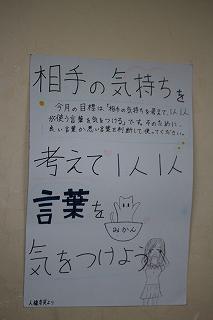 相手の気持ちを
今月の目標は「相手の気持ちを考えて、1人1人
が使う言葉を気をつける」です。そのために、
良い言葉か悪い言葉を判断して使ってください。
考えて1人1人
言葉を
みかん
気をつけよう
人権委員より